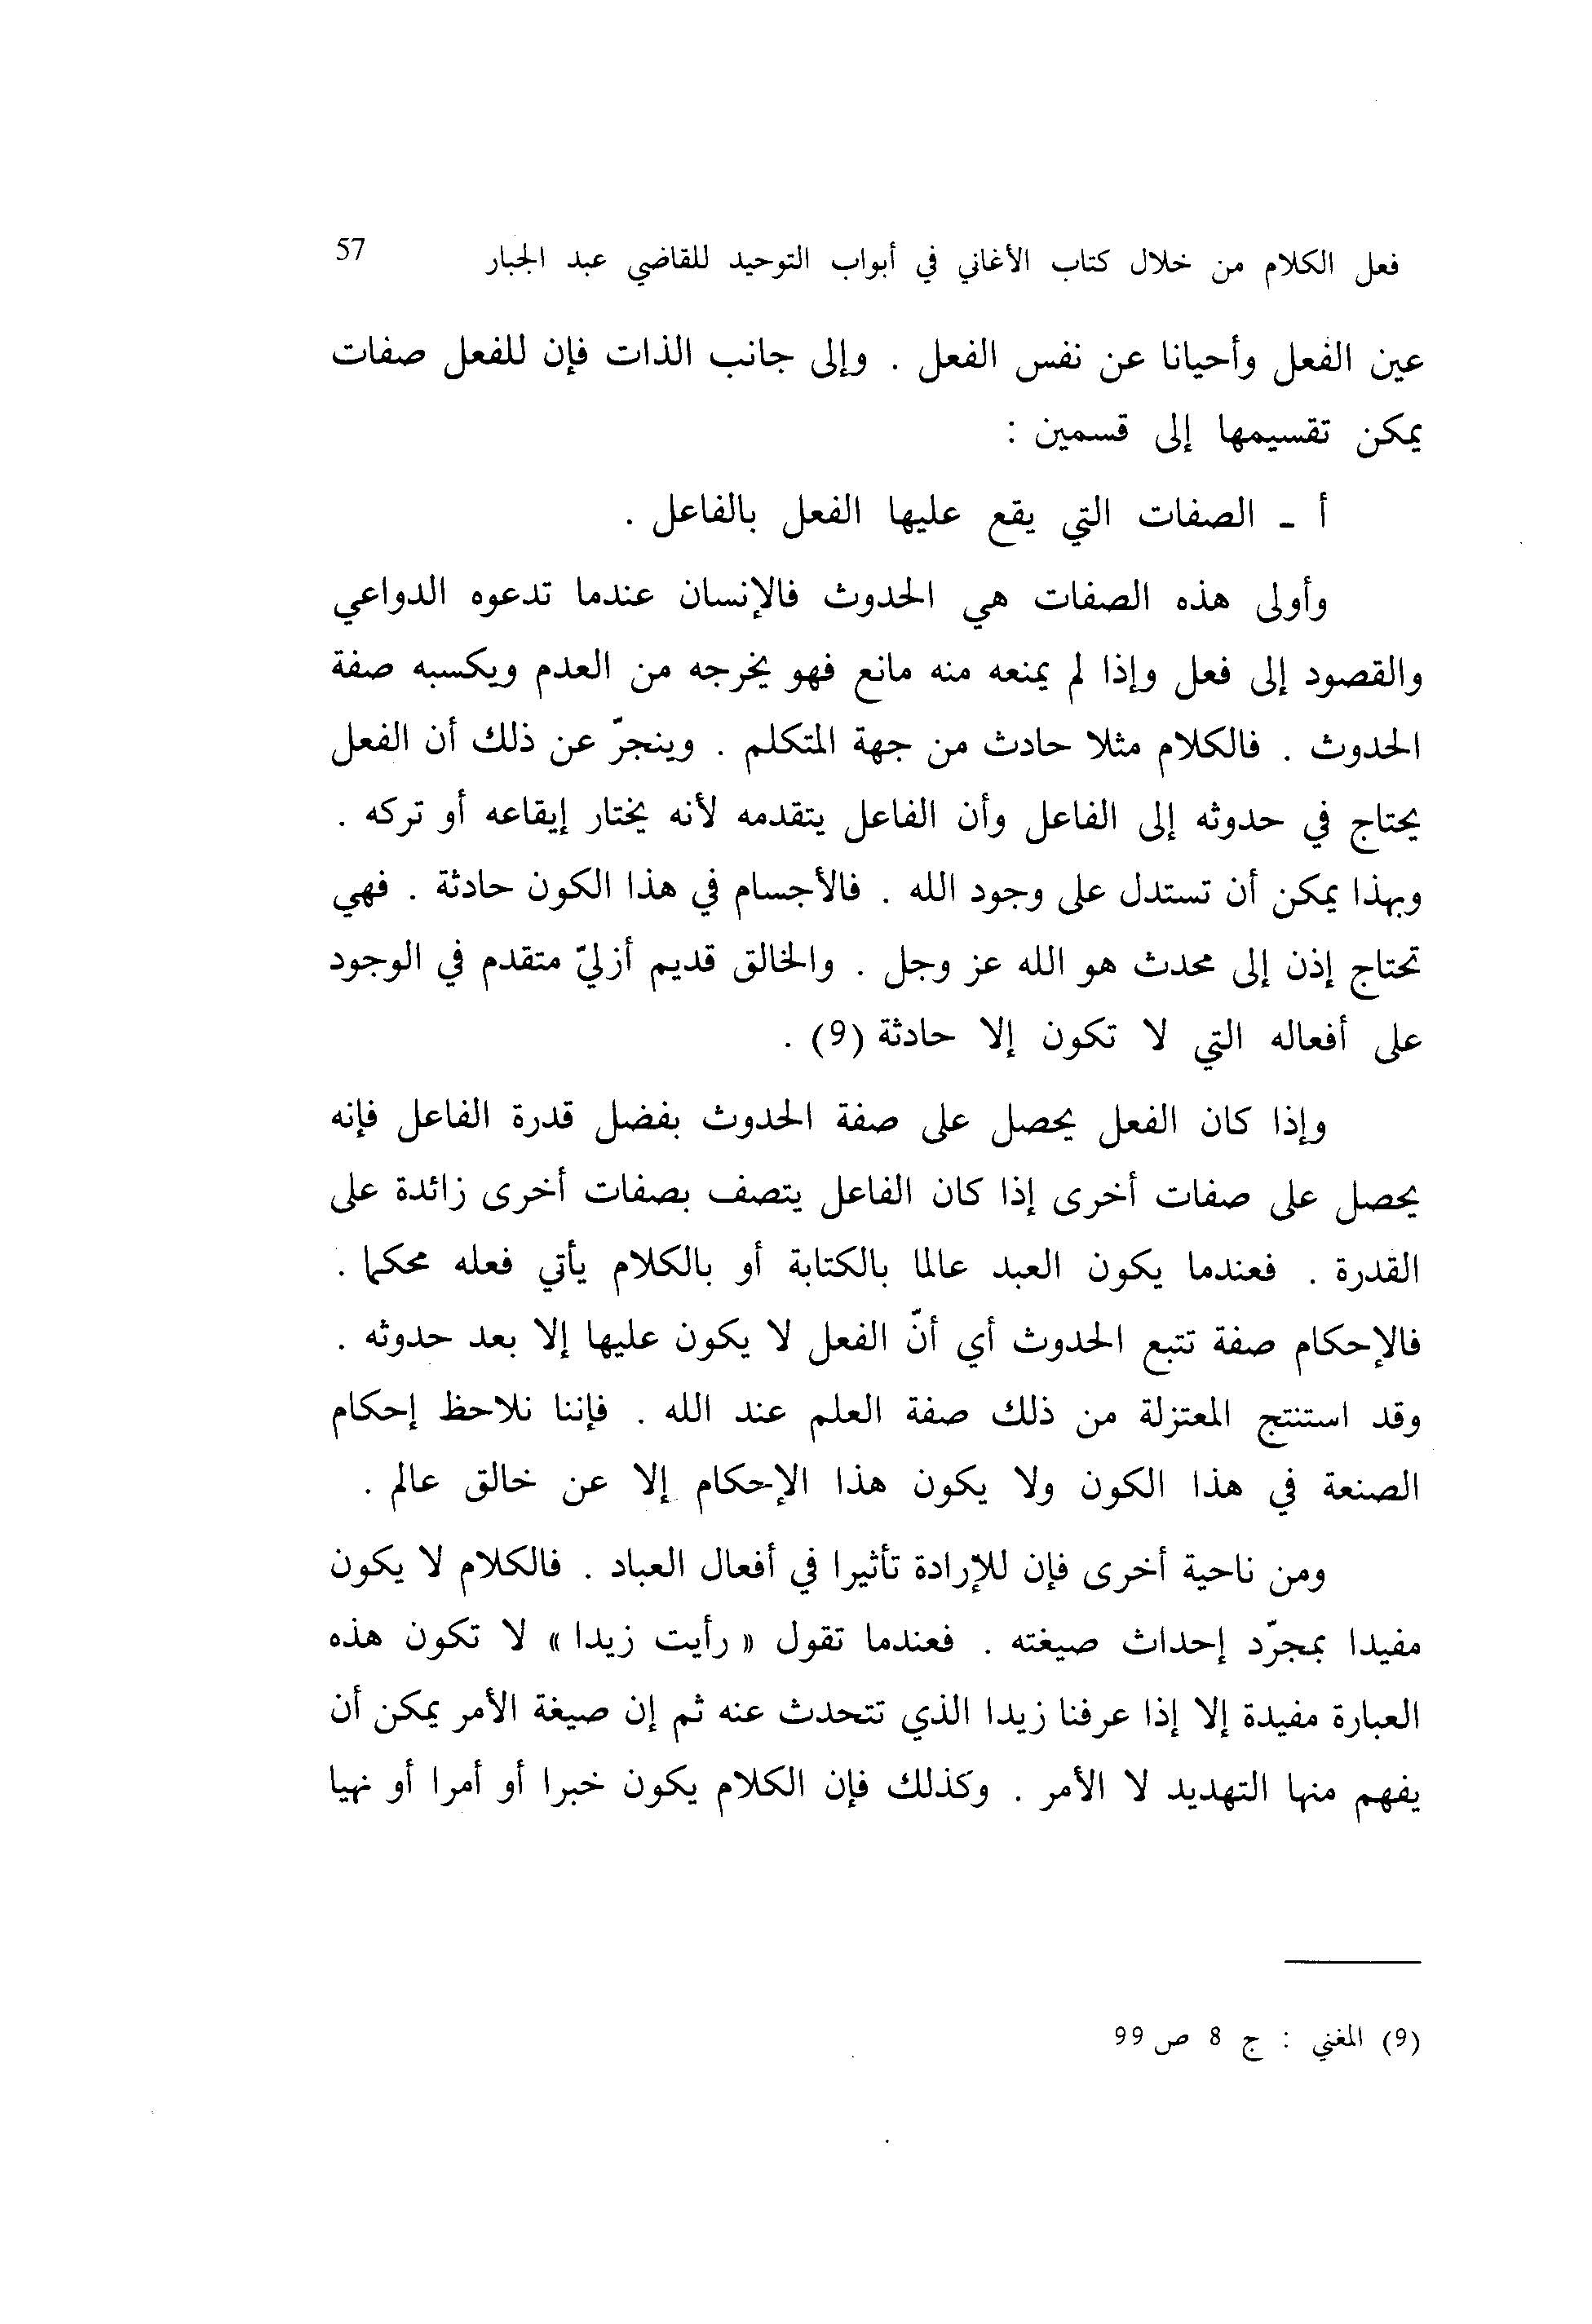 فعل الكلام من خلال كتاب الأغاني في أبواب التوحيد للقاضي عبد الجبار 57
عين الفعل وأحيانا عن نفس الفعل . وإلى جانب الذات فإن للفعل صفات
يمكن تقسيمها إلى قسمين :
أ - الصفات التي يقع عليها الفعل بالفاعل .
وأولى هذه الصفات هي الحدوث فالإنسان عندما تدعوه الدواعي
والقصود إلى فعل وإذا لم يمنعه منه مانع فهو يخرجه من العدم ويكسبه صفة
الحدوث . فالكلام مثلا حادث من جهة المتكلم . وينجرّ عن ذلك أن الفعل
يحتاج في حدوثه إلى الفاعل وأن الفاعل يتقدمه لأنه يختار إيقاعه أو تركه .
وبهذا يمكن أن تستدل على وجود الله . فالأجسام في هذا الكون حادثة . فهي
تحتاج إذن إلى محدث هو الله عز وجل . والخالق قديم أزليّ متقدم في الوجود
على أفعاله التي لا تكون إلا حادثة (9) .
وإذا كان الفعل يحصل على صفة الحدوث بفضل قدرة الفاعل فإنه
يحصل على صفات أخرى إذا كان الفاعل يتصف بصفات أخرى زائدة على
القدرة . فعندما يكون العبد عالما بالكتابة أو بالكلام يأتي فعله محكما .
فالإحكام صفة تتبع الحدوث أي أنّ الفعل لا يكون عليها إلا بعد حدوثه .
وقد استنتج المعتزلة من ذلك صفة العلم عند الله . فإننا نلاحظ إحكام
الصنعة في هذا الكون ولا يكون هذا الإحكام إلا عن خالق عالم .
ومن ناحية أخرى فإن للإرادة تأثيرا في أفعال العباد . فالكلام لا يكون
مفيدا بمجرّد إحداث صيغته . فعندما تقول « رأيت زيدا » لا تكون هذه
العبارة مفيدة إلا إذا عرفنا زيدا الذي تتحدث عنه ثم إن صيغة الأمر يمكن أن
يفهم منها التهديد لا الأمر . وكذلك فإن الكلام يكون خبرا أو أمرا أو نهيا
(9) المغني : ج 8 ص 99